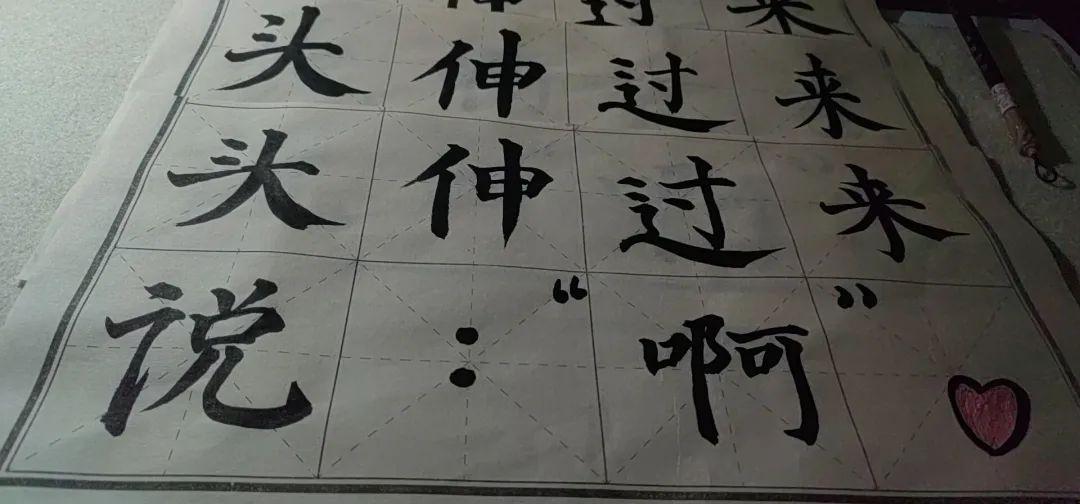 伸过来
头伸过来
头伸过来
说：“啊”